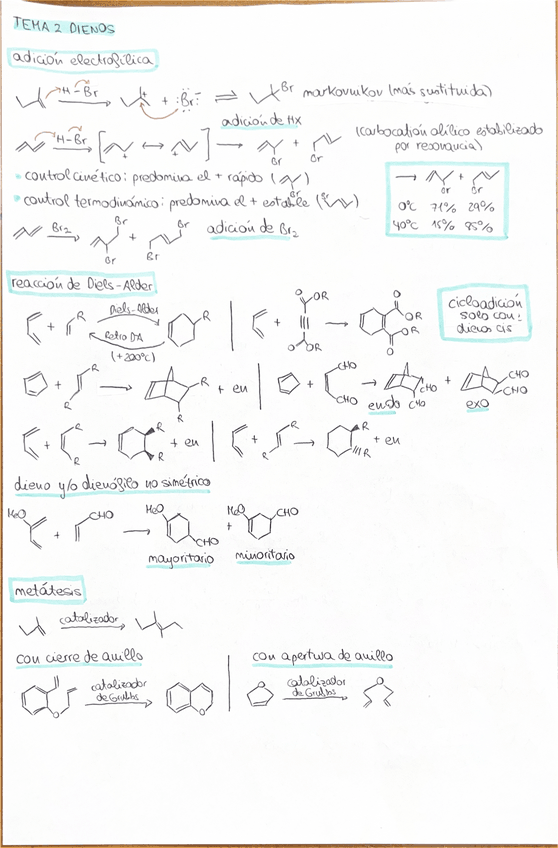 TEMA 2 DIENOS
adición electrofílica
H-Br + :Br:⁻ ⇌ Br markovnikov (más sustituida)
adición de HX
H-Br [ + ↔ + ] → Br + Br (carbocatión alílico estabilizado por resonancia)
• control cinético: predomina el + rápido ( Br )
• control termodinámico: predomina el + estable ( Br )
→ Br + Br
0°C 71% 29%
40°C 15% 85%
Br₂ → Br Br + Br Br adición de Br₂
reacción de Diels-Alder
+ R Diels-Alder R
Retro DA
(+200°C)
+ O OR O OR → O OR OR O
cicloadición
solo con:
dienos cis
+ R R → R R + en
+ CHO CHO → CHO CHO + CHO CHO
endo exo
+ R R → R R + en
+ R R → R R + en
dieno y/o dienófilo no simétrico
MeO + CHO → MeO CHO + MeO CHO
mayoritario minoritario
metátesis
catalizador
con cierre de anillo
O catalizador de Grubbs O
con apertura de anillo
O catalizador de Grubbs O